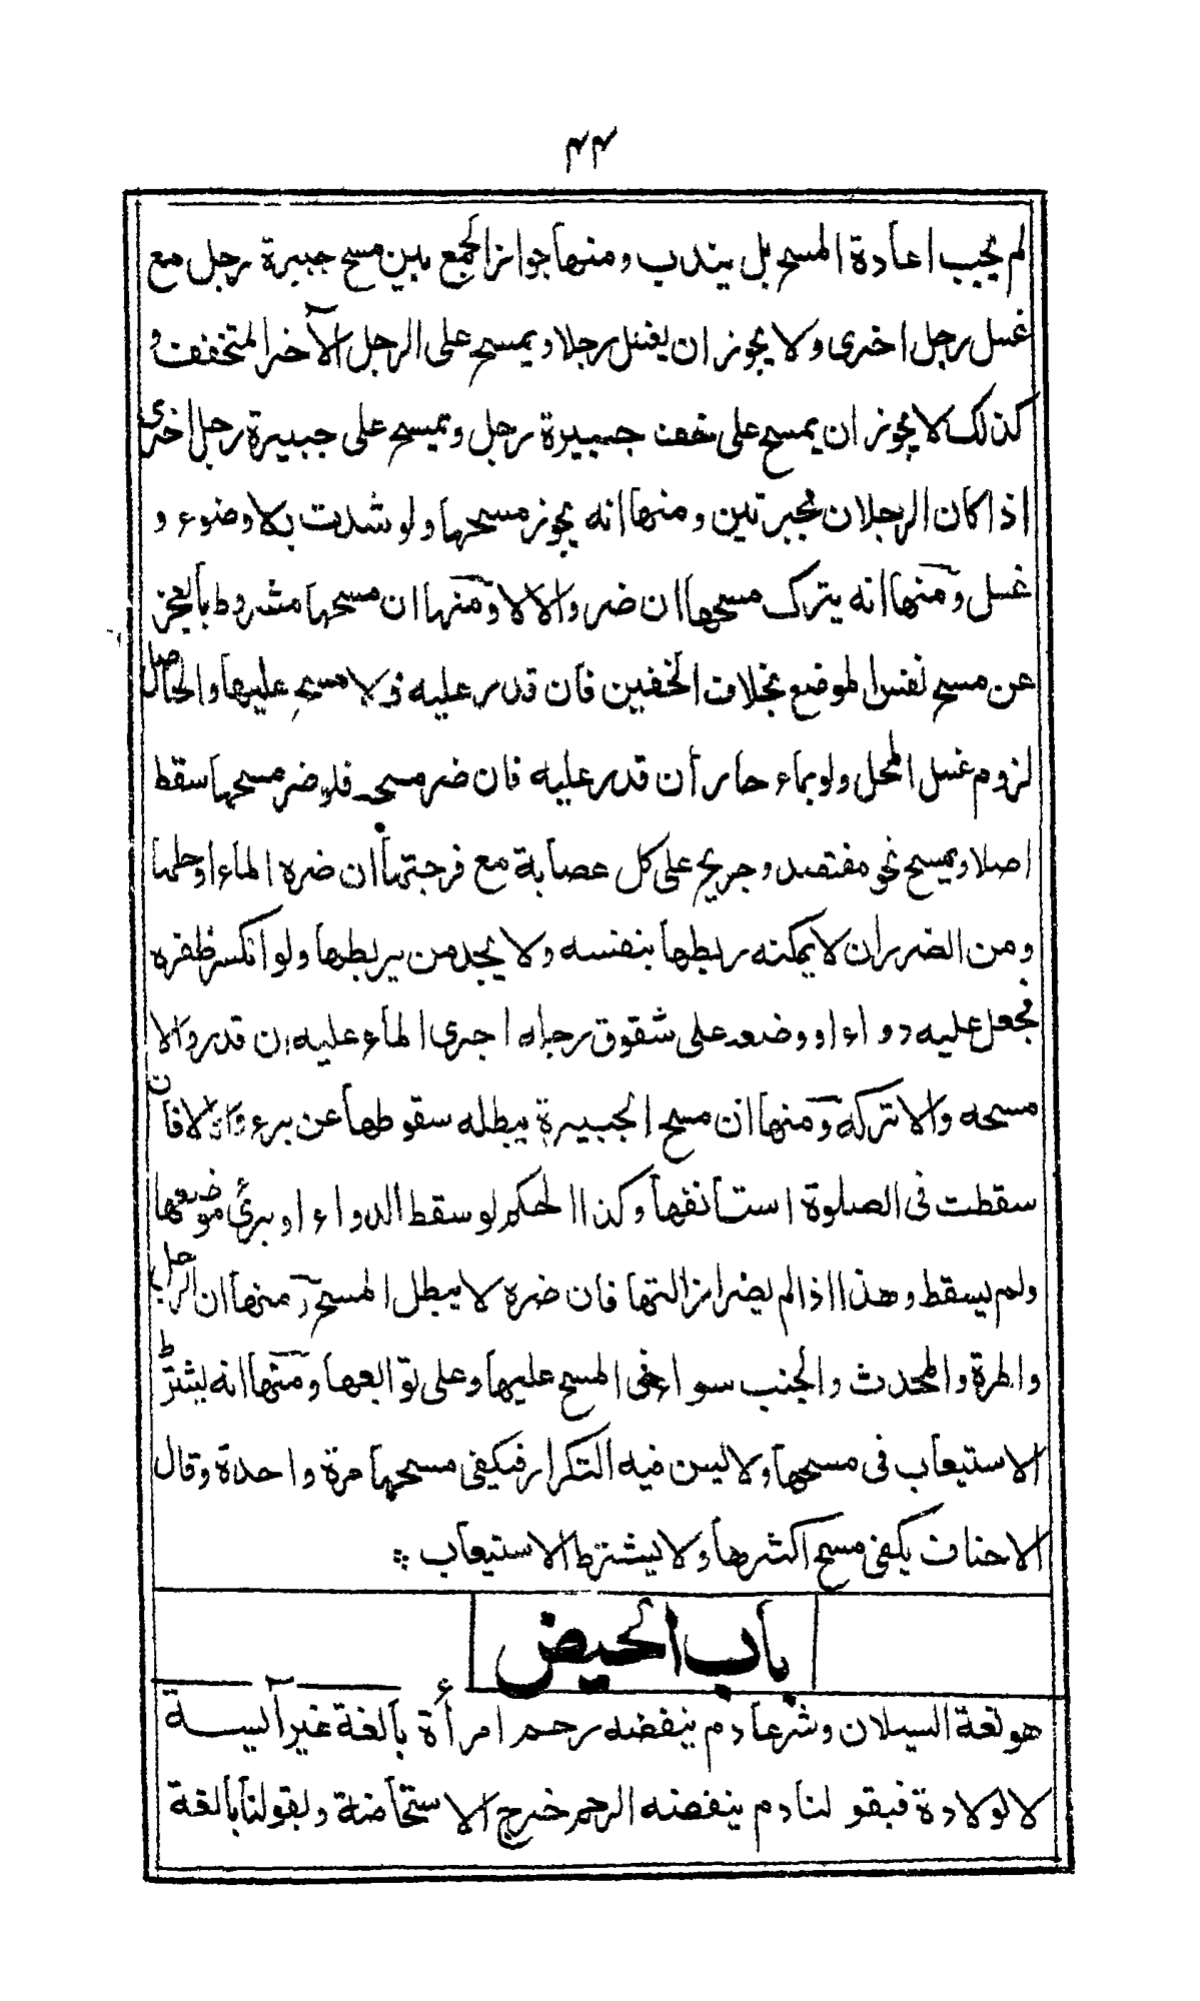 ٤٤
لم يجب اعادة المسح بل يندب ومنها جواز الجمع بين مسح جبيرة رجل مع
غسل رجل اخرى ولا يجوز ان يغسل رجلا ويمسح على الرجل الآخر المتخفف و
كذلك لا يجوز ان يمسح على خف جبيرة رجل ويمسح على جبيرة رجل اخرى
اذا كان الرجلان مجبرتين ومنها انه يجوز مسحها ولو شدت بلا وضوء و
غسل ومنها انه يترك مسحها ان ضر والا لا ومنها ان مسحها مشروط بالعجز
عن مسح نفس الموضع بخلاف الخفين فان قدر عليه فلا مسح عليها والحاصل
لزوم غسل المحل ولو بماء حار أن قدر عليه فان ضر مسحه فلو ضر مسحها سقط
اصلا ويمسح نحو مفتصد وجريح على كل عصابة مع فرجتها ان ضره الماء او حلها
ومن الضرر ان لا يمكنه ربطها بنفسه ولا يجد من يربطها ولو انكسر ظفره
فجعل عليه دواء او وضعه على شقوق رجله اجرى الماء عليه ان قدر والا
مسحه والا تركه ومنها ان مسح الجبيرة يبطله سقوطها عن برء والا لا فان
سقطت فى الصلوة استأنفها وكذا الحكم لو سقط الدواء او برئ موضعها
ولم يسقط وهذا اذا لم يضر ازالتها فان ضره لا يبطل المسح ومنها ان الرجل
والمرة والمحدث والجنب سواء فى المسح عليها وعلى توابعها ومنها انه يشترط
الاستيعاب فى مسحها ولا ليسن فيه التكرار فيكفى مسحها مرة واحدة وقال
الاحناف يكفى مسح اكثرها ولا يشترط الاستيعاب
باب الحيض
هو لغة السيلان وشرعا دم ينفضه رحم امرأة بالغة غير آئسة
لا لولادة فبقولنا دم ينفضه الرحم خرج الاستحاضة وبقولنا بالغة